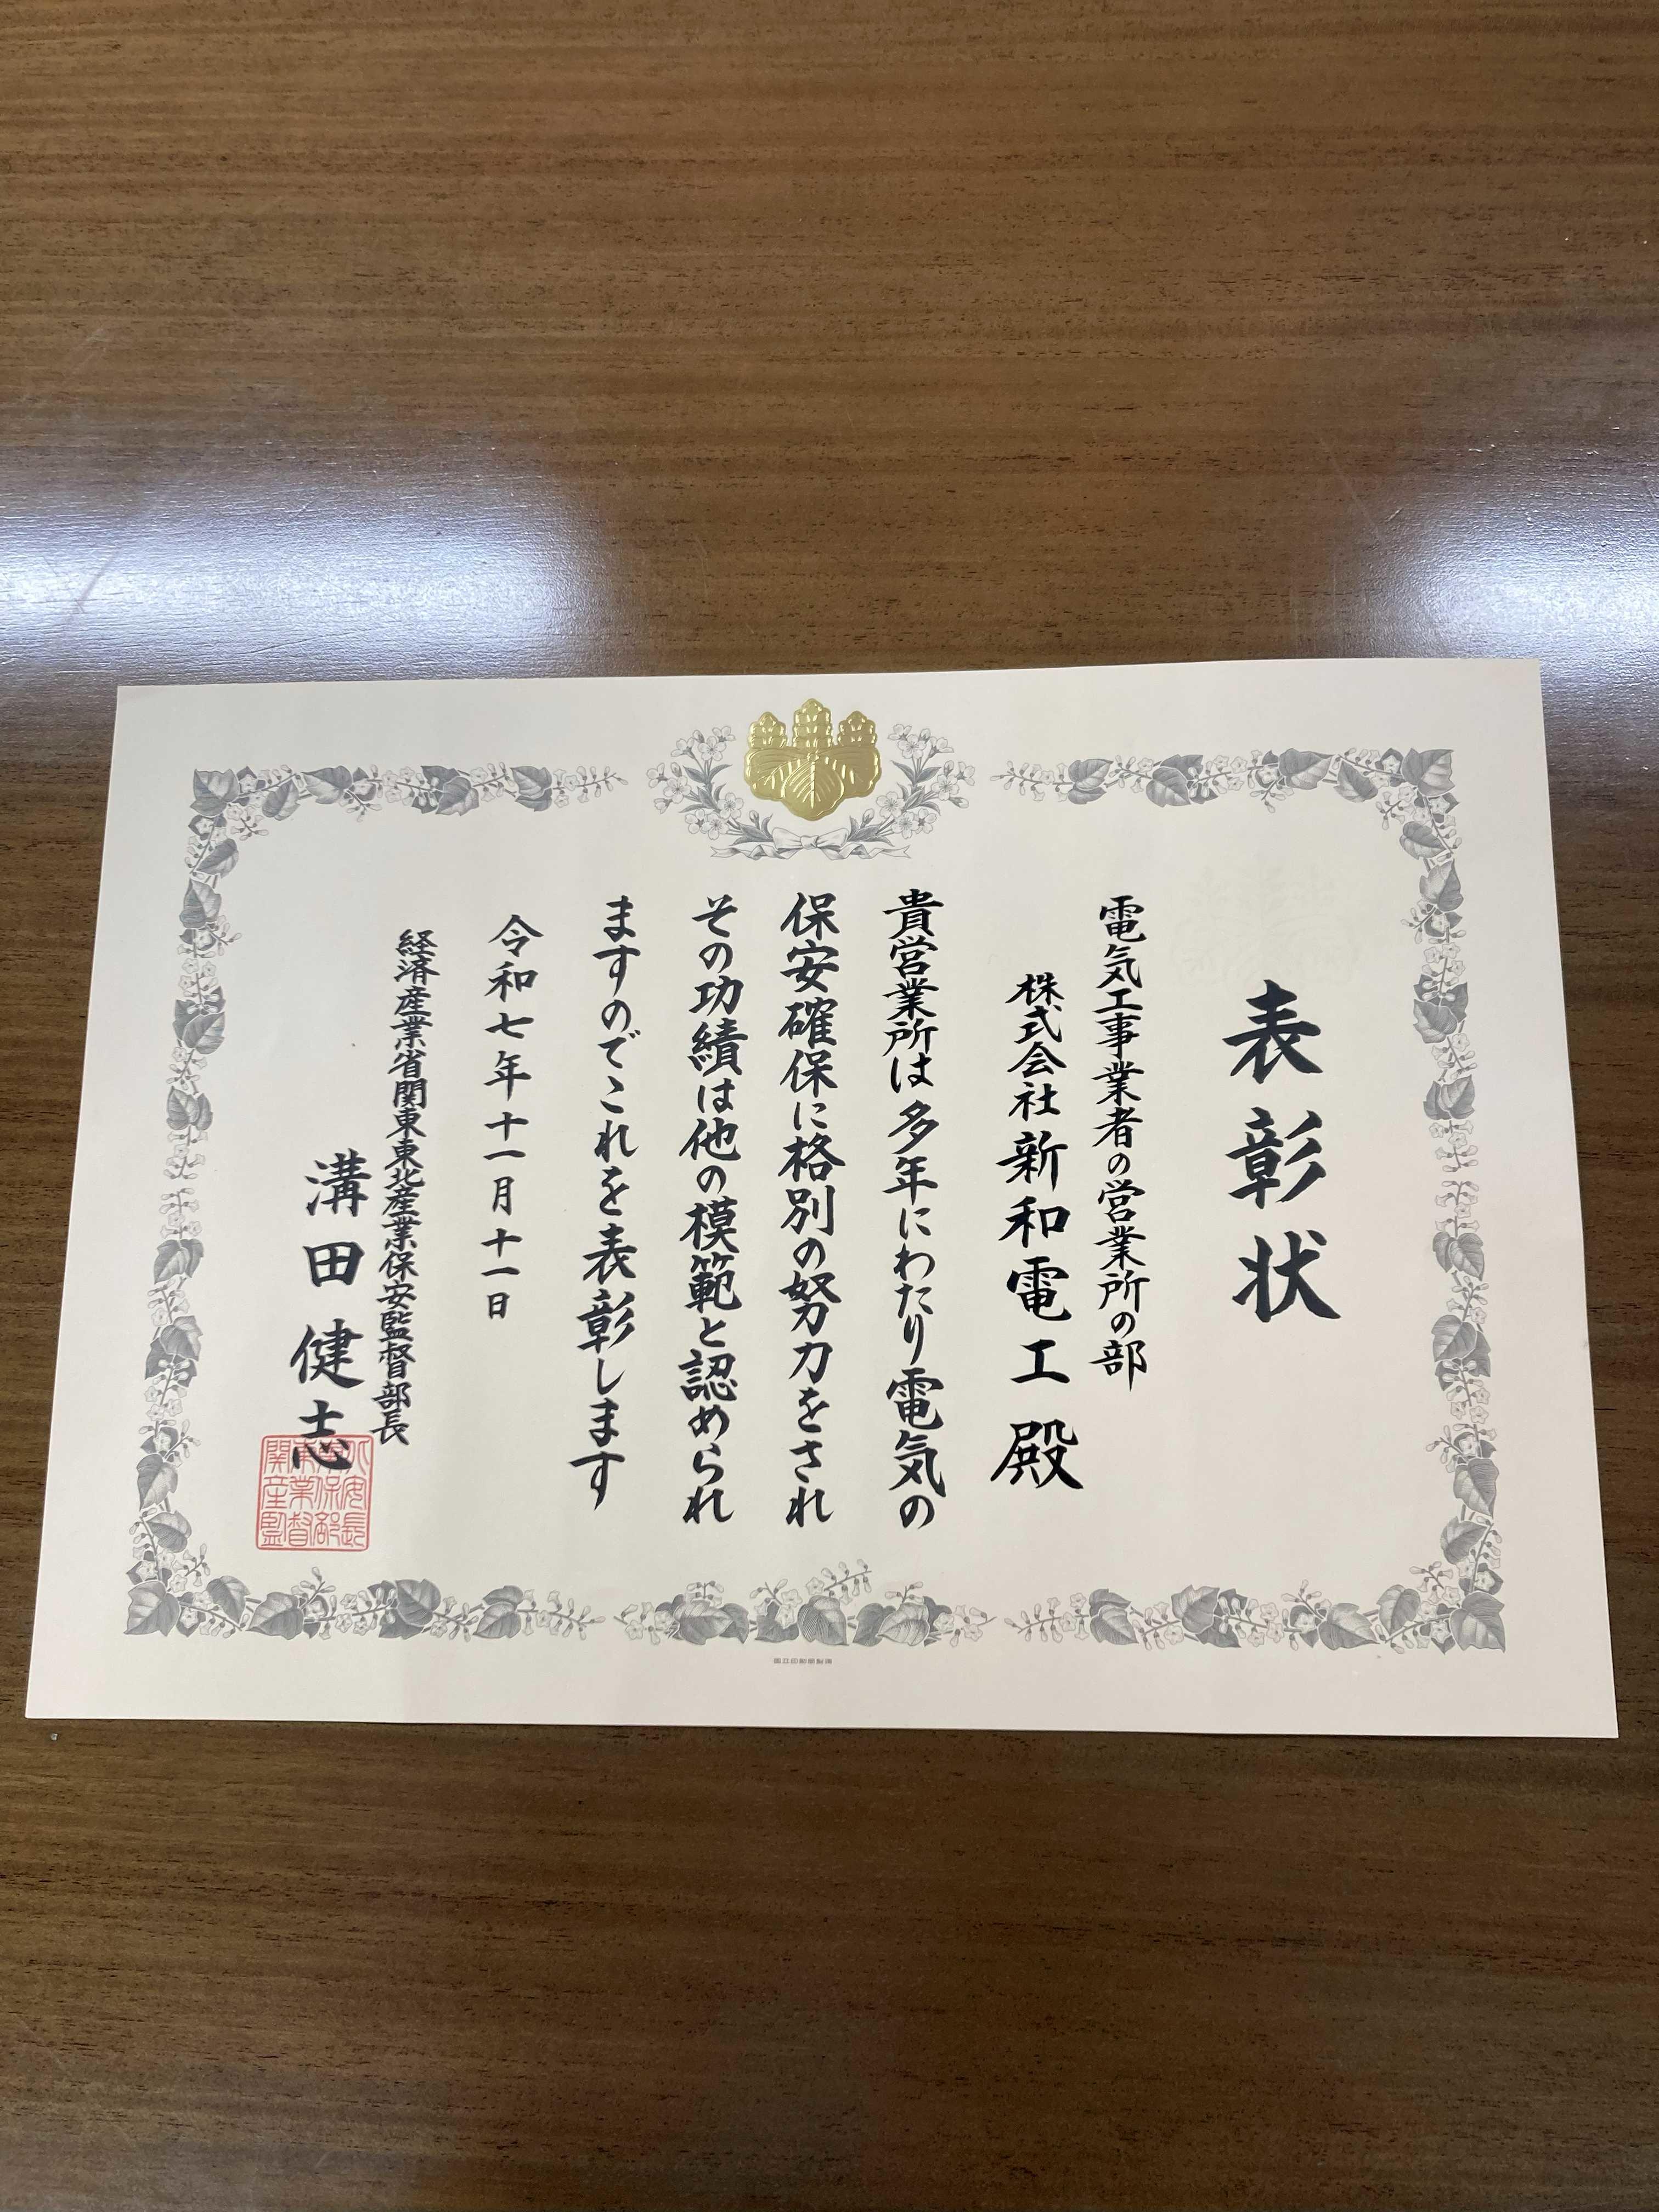 表彰状
電気工事業者の営業所の部
株式会社新和電工殿
貴営業所は多年にわたり電気の
保安確保に格別の努力をされ
その功績は他の模範と認められ
ますのでこれを表彰します
令和七年十一月十一日
経済産業省関東東北産業保安監督部長
溝田健志
国立印刷局製造